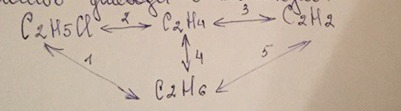 C2H5Cl ⟷ 2 C2H4 ⟷ 3 C2H2
1 4 5
C2H6